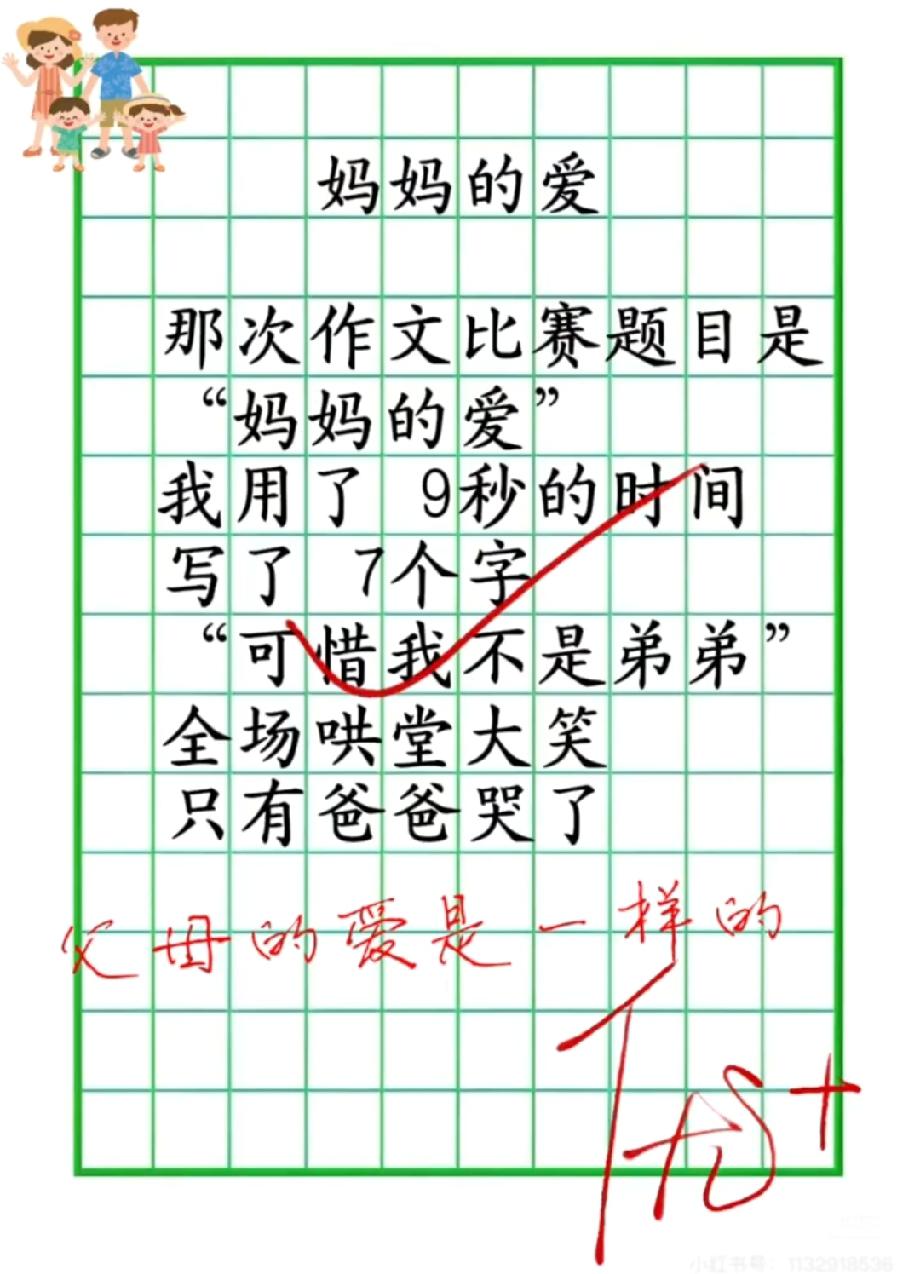 妈妈的爱
那次作文比赛题目是
“妈妈的爱”
我用了 9秒的时间
写了 7个字
“可惜我不是弟弟”
全场哄堂大笑
只有爸爸哭了
父母的爱是一样的
优+
小红书号：1132918536